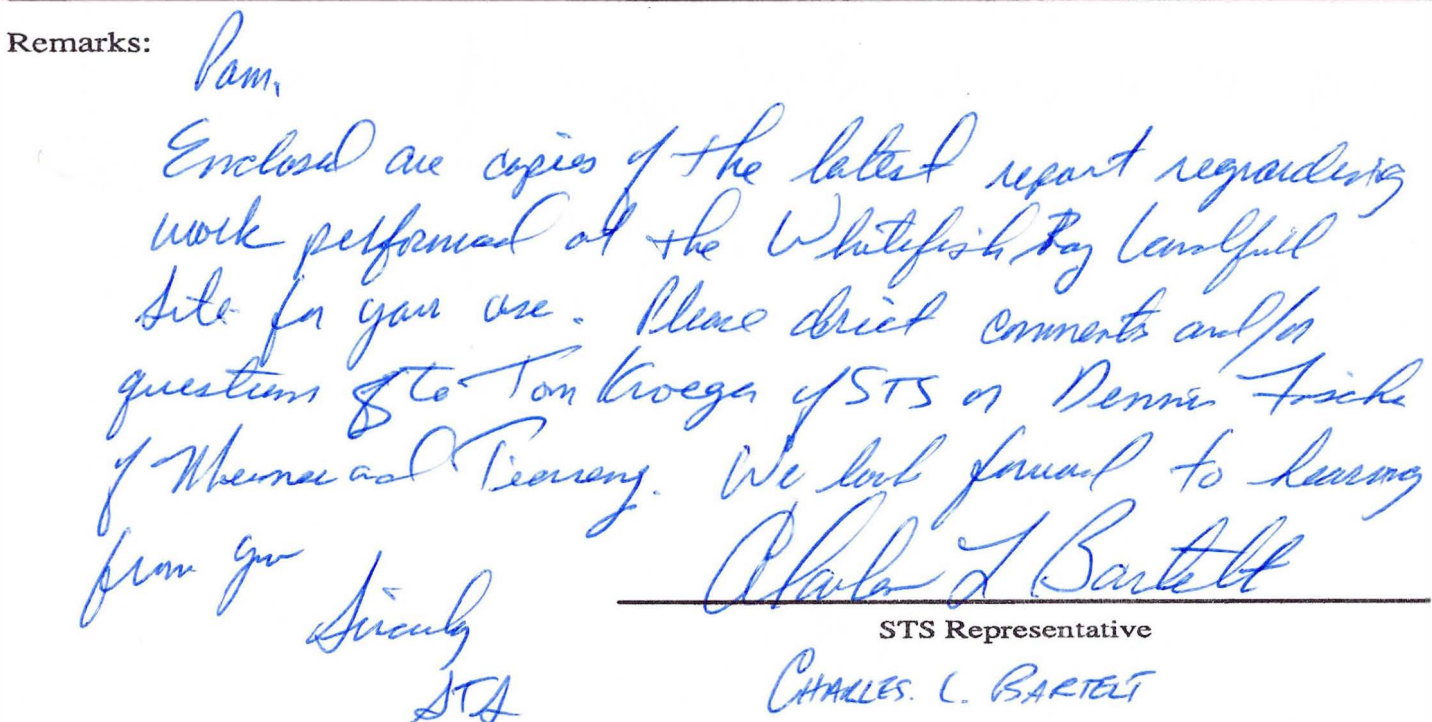 Remarks:
Pam,
Enclosed are copies of the latest report regarding
work performed at the Whitefish Bay Landfill
site for your use. Please direct comments and/or
questions to Tom Kroeger of STS or Dennis Fische
of and We look forward to hearing
from you
Charles L Bartelt
Sincerely
STS Representative
STS
CHARLES. L. BARTELT